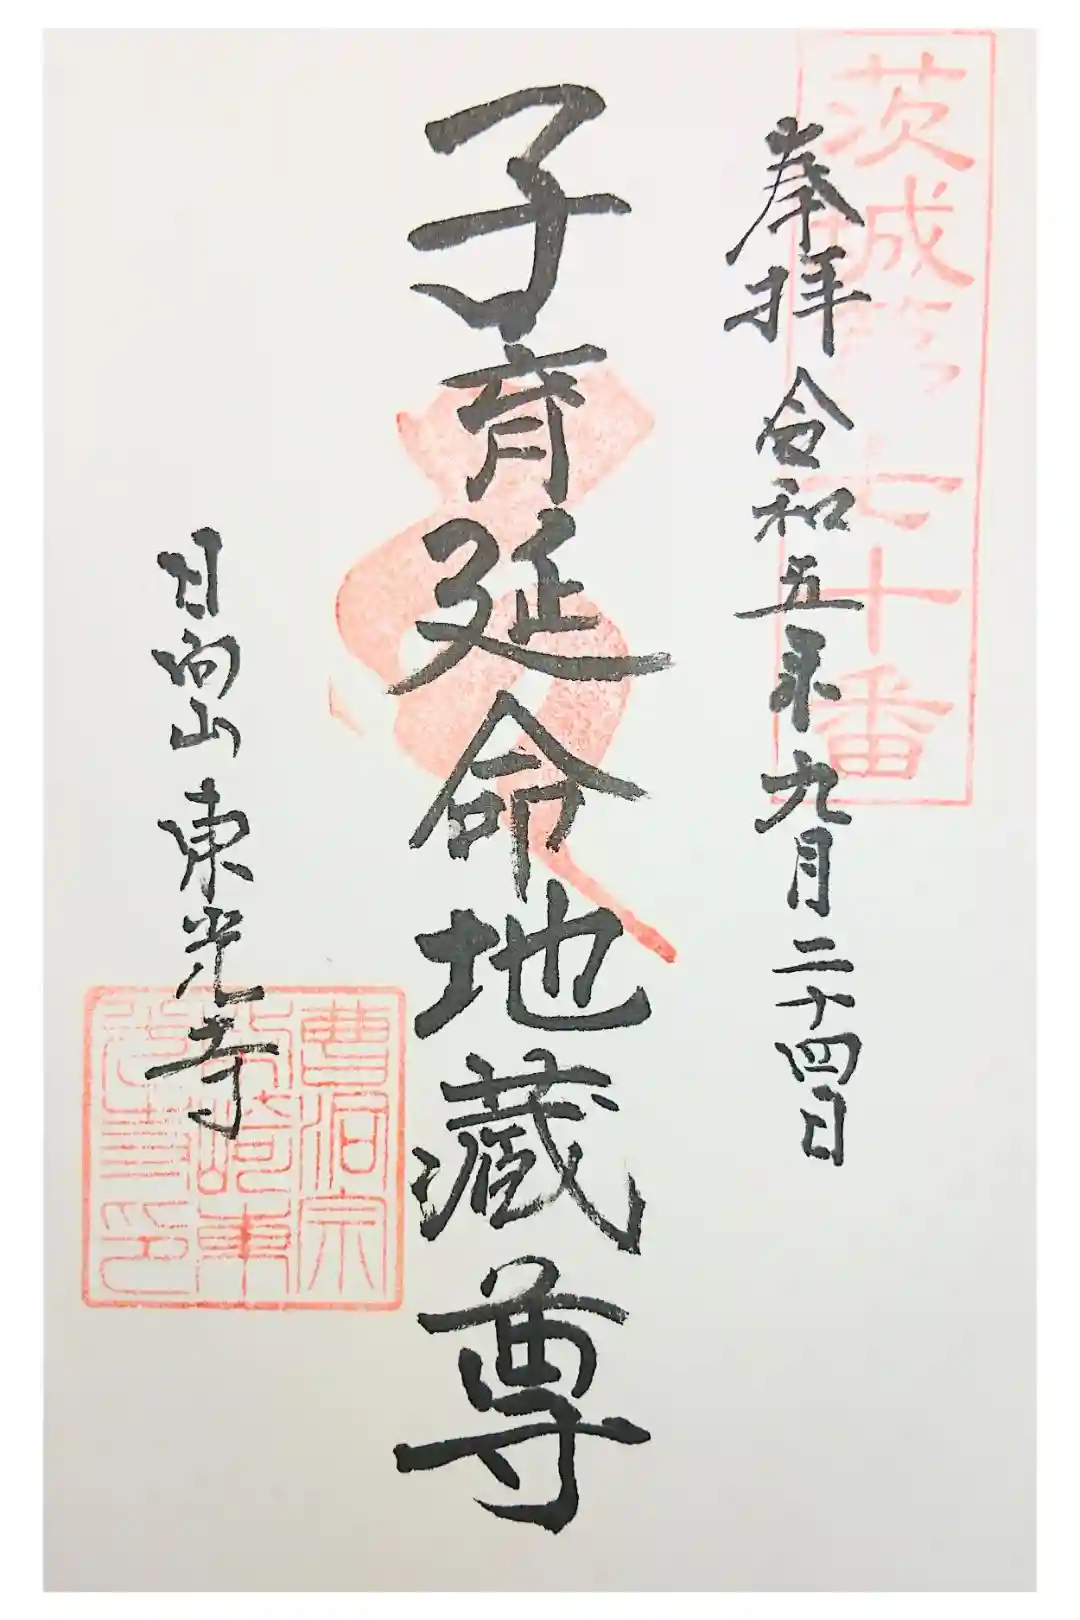 茨城第七十番
奉拝 令和五年九月二十四日
子育延命地蔵尊
日向山 東光寺
曹洞宗